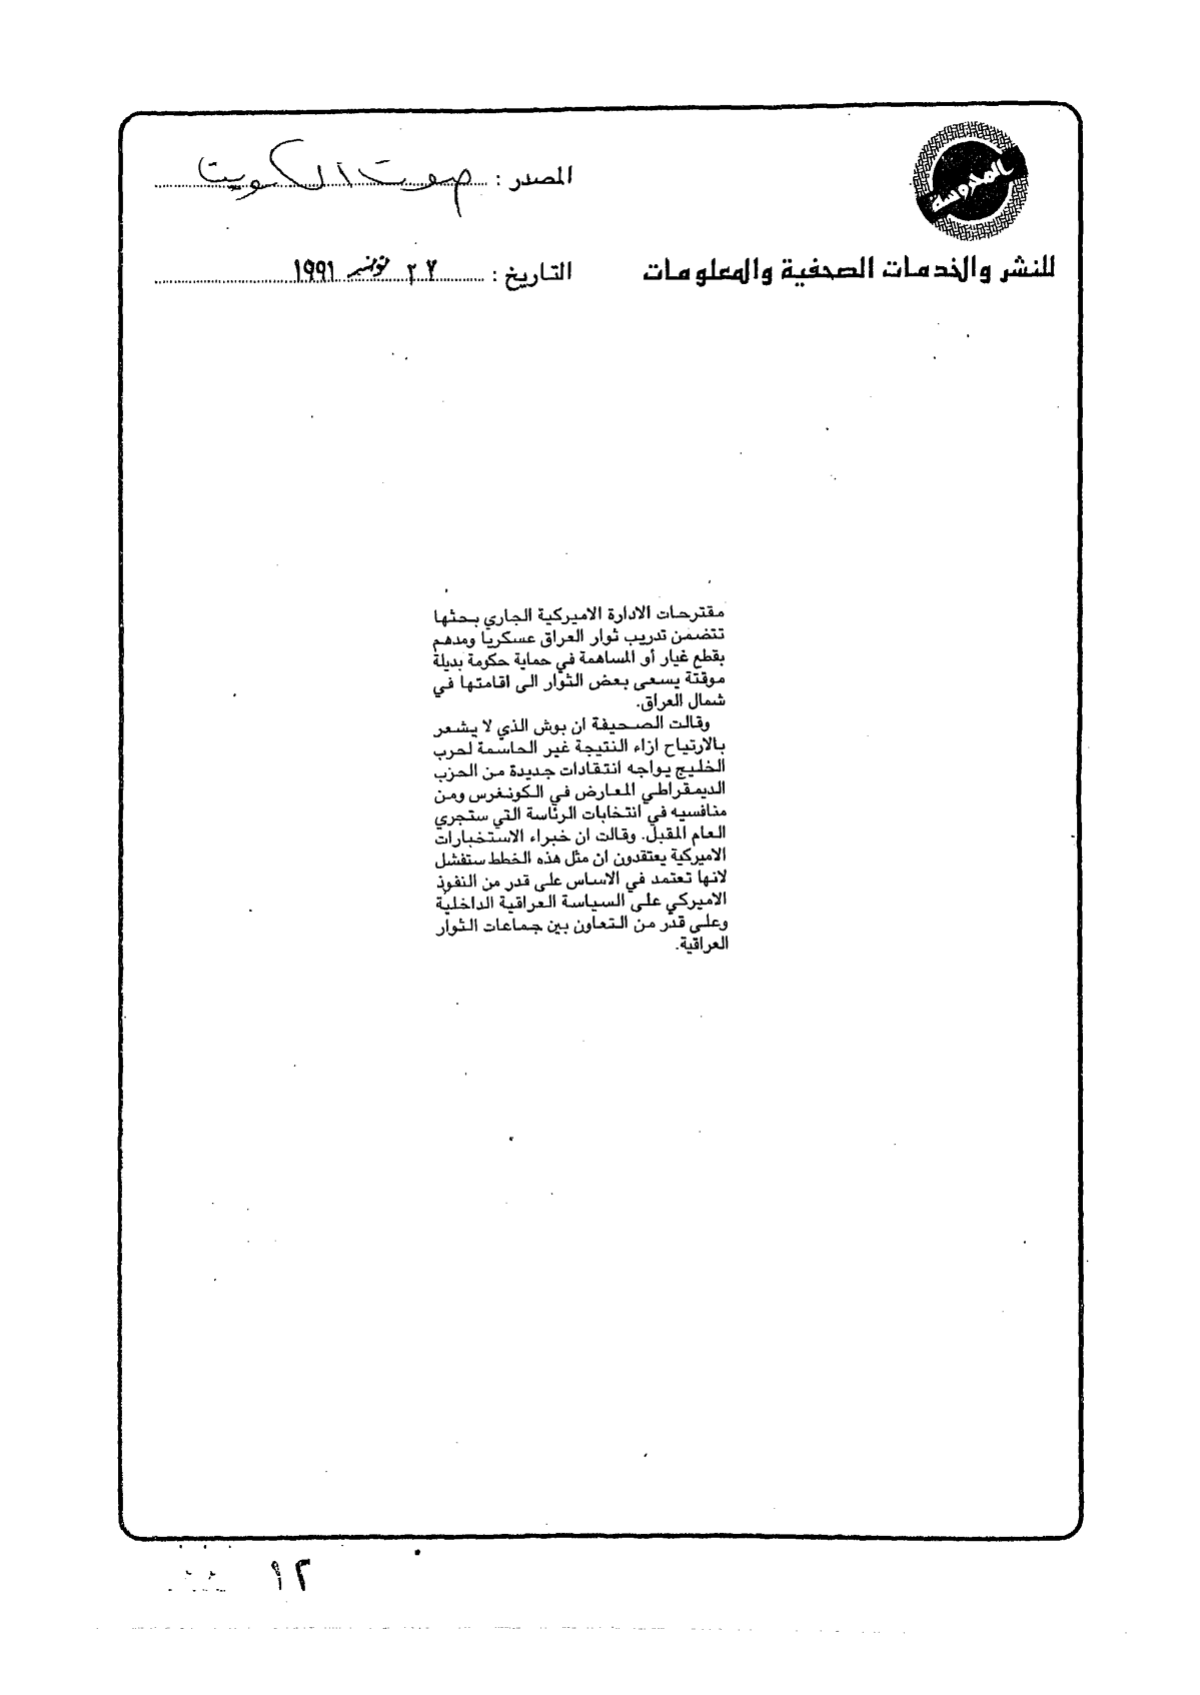 المحروسة
للنشر والخدمات الصحفية والمعلومات
المصدر : صوت الكويت
التاريخ : ٢٧ نوفمبر ١٩٩١
مقترحات الادارة الاميركية الجاري بحثها
تتضمن تدريب ثوار العراق عسكريا ومدهم
بقطع غيار أو المساهمة في حماية حكومة بديلة
موقتة يسعى بعض الثوار الى اقامتها في
شمال العراق.
وقالت الصحيفة ان بوش الذي لا يشعر
بالارتياح ازاء النتيجة غير الحاسمة لحرب
الخليج يواجه انتقادات جديدة من الحزب
الديمقراطي المعارض في الكونغرس ومن
منافسيه في انتخابات الرئاسة التي ستجري
العام المقبل. وقالت ان خبراء الاستخبارات
الاميركية يعتقدون ان مثل هذه الخطط ستفشل
لانها تعتمد في الاساس على قدر من النفوذ
الاميركي على السياسة العراقية الداخلية
وعلى قدر من التعاون بين جماعات الثوار
العراقية.